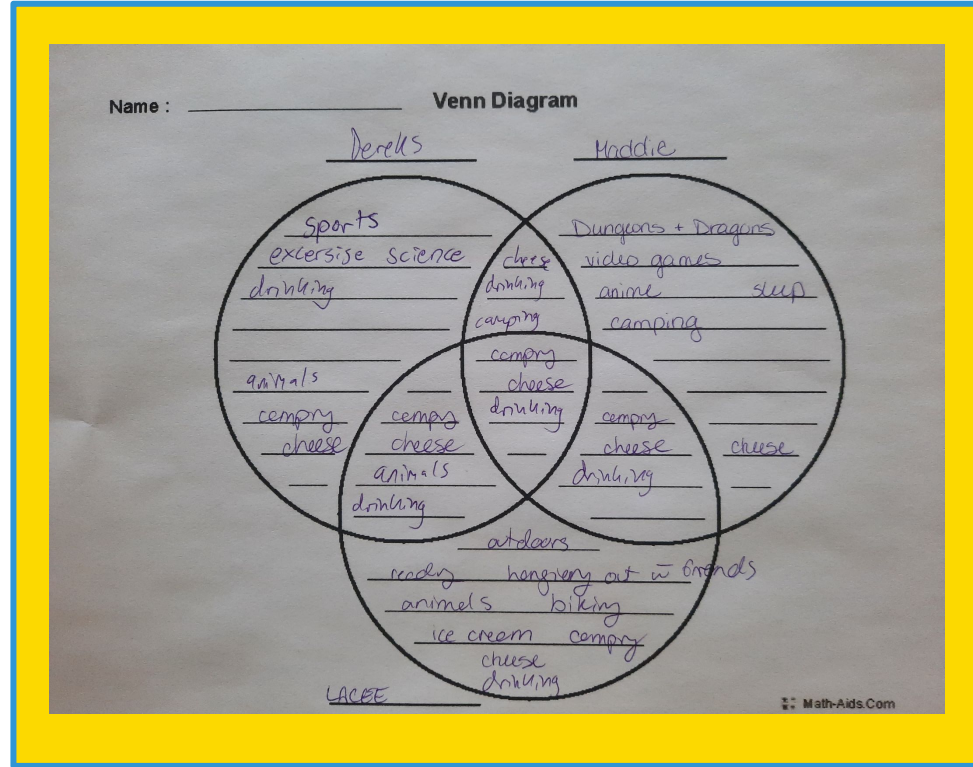 Name :
Venn Diagram
Dereks
Maddie
sports
excersise science
drinking
animals
cempry
cheese
cheese
drinking
camping
Dungeons + Dragons
video games
anime sleep
camping
cheese
cempry
cheese
drinking
cempry
cheese
animals
drinking
cempry
cheese
drinking
outdoors
out w friends
animels biking
ice creem cempry
cheese
drinking
LACEE
Math-Aids.Com